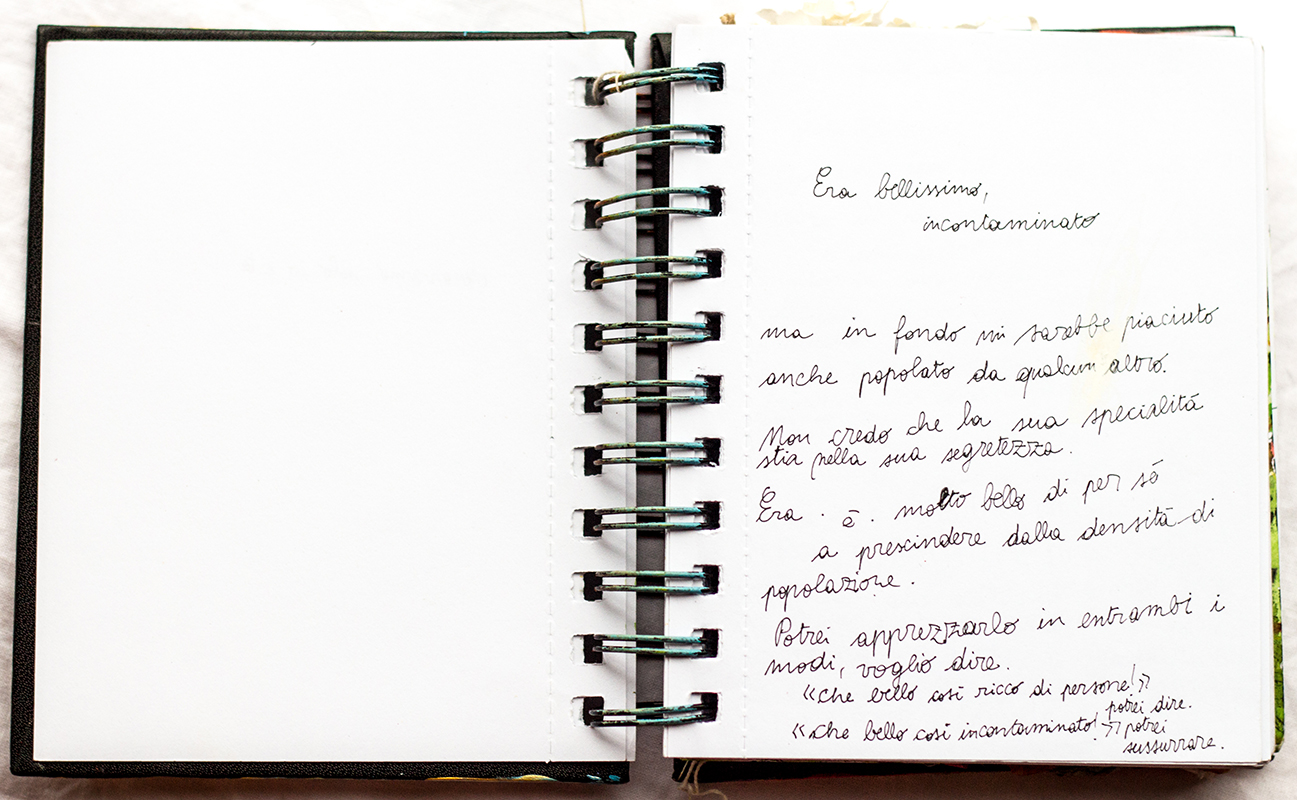 Era bellissimo,
incontaminato
ma in fondo mi sarebbe piaciuto
anche popolato da qualcun altro.
Non credo che la sua specialità
stia nella sua segretezza.
Era . è . molto bello di per sé
a prescindere dalla densità di
popolazione.
Potrei apprezzarlo in entrambi i
modi, voglio dire.
«Che bello così ricco di persone!»
potrei dire.
«Che bello così incontaminato!» potrei
sussurrare.